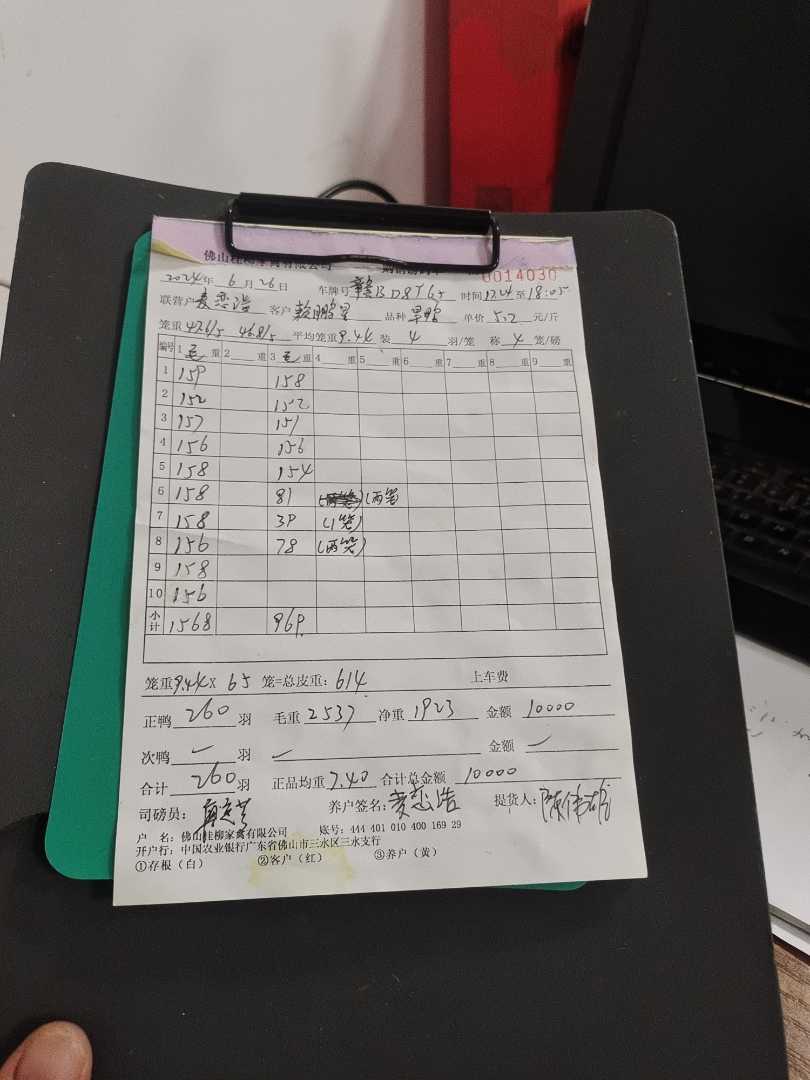 佛山桂柳家禽有限公司
0014030
2024年 6月26日 车牌号 赣BD8T65 时间17.24至18:05
联营户麦恋浩 客户 赖鹏星 品种 旱鸭 单价 5.2 元/斤
笼重47.6/5 46.8/5 平均笼重9.4K 装 4 羽/笼 称 4 笼/磅
编号 1毛重 2 重 3毛重 4 重 5 重 6 重 7 重 8 重 9 重
1 159 158
2 152 152
3 157 151
4 156 156
5 158 154
6 158 81 (两笼)
7 158 39 (1笼)
8 156 78 (两笼)
9 158
10 156
小计 1568 969
笼重9.4K× 65 笼=总皮重: 614 上车费
正鸭 260 羽 毛重 2537 净重 1923 金额 10000
次鸭 ✓ 羽 ✓ 金额 ✓
合计 260 羽 正品均重7.40 合计总金额 10000
司磅员: 养户签名: 麦恋浩 提货人: 陈伟
户 名: 佛山桂柳家禽有限公司 账号: 444 401 010 400 169 29
开户行: 中国农业银行广东省佛山市三水区三水支行
①存根(白) ②客户(红) ③养户(黄)